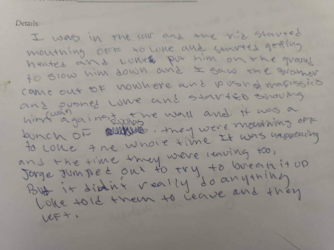 Details
I was in the car and the kid started
mouthing off to Luke and started getting
heated and Luke put him on the ground
to slow him down and I saw the brother
came out of nowhere and
and pushed Luke and started
him against the wall and it was a
bunch of They were mouthing off
to Luke the whole time It was happening
and the time they were leaving too,
Jorge jumped out to try to break it up
But it didn't really do anything
Luke told them to leave and they
left.